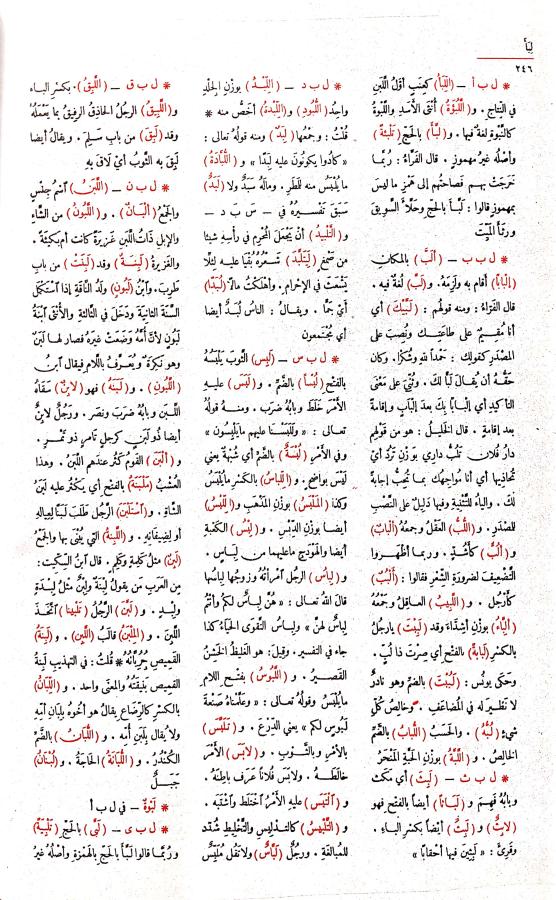 لبأ
٢٤٦
* ل ب أ – (اللِّبَأُ) كعِنَبٍ أوّلُ اللَّبَنِ
في النِّتاج . و (اللَّبُؤَةُ) أُنثى الأَسَدِ واللَّبْوَةُ
كالنَّبْوة لغةٌ فيها . و (لَبَّأَ) بالحَجِّ (تَلْبِئَةً)
وأصْلُه غيرُ مهموزٍ . قال الفَرَّاءُ : رُبَّما
خَرَجَتْ بهم فَصاحَتُهم إلى هَمْزِ ما ليسَ
بمهموز قالوا : لَبَّأ بالحج وحَلَّأ السَّويقَ
ورَثَأ الميِّتَ
* ل ب ب – (أَلَبَّ) بالمكان
(إلْبَاباً) أقام به ولَزِمَهُ . و (لَبَّ) لُغةٌ فيه .
قال الفَرّاءُ : ومنه قولُهم : (لَبَّيْكَ) أي
أنا مُقيمٌ على طاعتِك ونُصِبَ على
المصْدَرِ كقولك : حَمْداً للهِ وشُكْرًا . وكان
حَقُّه أن يُقالَ لَبًّا لَكَ . وثُنِّيَ على مَعْنى
التأكيدِ أي إلْبابًا بك بعدَ إلْبابٍ وإقامةً
بعد إقامةٍ . قال الخليلُ : هو من قولِهِم
دارُ فُلانٍ تَلُبُّ داري بوَزْنِ تَرُدُّ أيْ
تُحاذِيها أي أنا مُواجِهُك بما تُحِبُّ إجابةً
لكَ . والياءُ للتَّثْنِيةِ وفيها دَليلٌ على النَّصْبِ
للمصْدرِ . و (اللُّبُّ) العَقْلُ وجمعُه (أَلْبَابٌ)
و (أَلُبٌّ) كأَشُدٍّ . وربما أظْهَروا
التَّضْعيفَ لضرورةِ الشِّعْرِ فقالوا : (أَلْبُبٌ)
كأَرْجُلٍ . و (اللَّبِيبُ) العاقِلُ وجَمْعُهُ
(أَلِبَّاءُ) بوَزْنِ أَشِدَّاءَ وقد (لَبِبْتَ) يارجُلُ
بالكسرِ (لَبَابةً) بالفتْحِ أي صِرْتَ ذا لُبٍّ .
وحَكى يونُس : (لَبُبْتَ) بالضم وهو نادِرٌ
لا نَظيرَ له في المُضاعَفِ . وخالصُ كُلِّ
شيءٍ (لُبُّهُ) . والحَسَبُ (اللُّبابُ) بالضَّمِّ
الخالِصُ . و (اللَّبَّةُ) بوزْنِ الحَبَّةِ المَنْحَرُ
* ل ب ث – (لَبِثَ) أي مَكَثَ
وبابُه فَهِمَ و (لَبَاثاً) أيضاً بالفَتْحِ فهو
(لابِثٌ) و (لَبِثٌ) أيْضًا بكَسْرِ الباء .
وقُرِئَ : « لَبِثِينَ فيها أَحْقاباً »
* ل ب د – (اللِّبْدُ) بوَزْنِ الجِلْدِ
واحِدُ (اللُّبُودِ) و (اللِّبْدةُ) أخَصُّ منه *
قُلْتُ : وجمْعُها (لِبَدٌ) ومنه قولُهُ تعالى :
« كادُوا يكونُونَ عليه لِبَدًا » و (اللُّبَّادَةُ)
ما يُلْبَسُ منه للمَطَرِ . وماله سَبَدٌ ولا (لَبَدٌ)
سَبَقَ تَفْسيرُهُ في – س ب د –
و (التَّلْبيدُ) أنْ يَجْعَلَ المُحْرِم في رأسِه شيئا
من صَمْغٍ (لِيَتَلَبَّدَ) شَعْرُهُ بُقْيا عليه لئلّا
يَشْعَثَ في الإحرام . وأهْلَكْتُ مالًا (لُبَدًا)
أيْ جَمًّا . ويقالُ : الناسُ لُبَدٌ أيضا
أي مُجتَمعون
* ل ب س – (لَبِسَ) الثوبَ يَلْبَسُهُ
بالفتْحِ (لُبْساً) بالضَّمِّ . و (لَبَسَ) عليهِ
الأمْرَ خَلَطَ وبابُهُ ضَرَب . ومنهُ قولُهُ
تعالى : « وللَبَسْنا عليهم ما يلْبِسون »
وفي الأمرِ (لُبْسَةٌ) بالضَّمِّ أي شُبْهةٌ يعني
ليس بواضِحٍ . و (اللِّباسُ) بالكسرِ مايُلْبَسُ
وكذا (المَلْبَسُ) بوزْنِ المَذْهَبِ و (اللِّبْسُ)
أيضا بوزنِ الدِّبْسِ . و (لِبْسُ) الكَعْبَةِ
أيضا والهَوْدَجِ ما عليهما من لِباسٍ .
و (لِباسُ) الرجُلِ امْرأتُهُ وزَوْجُها لِباسُها
قالَ اللهُ تعالى : « هُنَّ لِباسٌ لكم وأنتُمْ
لِباسٌ لهنَّ » ولِباسُ التَّقْوى الحَيَاءُ كذا
جاء في التفسير . وقيلَ: هو الغليظُ الخَشِنُ
القَصِيرُ . و (اللَّبُوسُ) بفتْحِ اللام
ما يُلْبَسُ وقولُه تعالى : « وعَلَّمْناهُ صَنْعةَ
لَبُوسٍ لكم » يعني الدِّرْعَ . و (تَلَبَّسَ)
بالأمْرِ وبالثَّوْبِ . و (لابَسَ) الأمْرَ
خالَطَهُ . ولابَسَ فُلاناً عَرَفَ باطِنَهُ .
و (الْتَبَسَ) عليهِ الأمْرُ اخْتَلَطَ واشْتَبَه .
و (التَّلْبِيسُ) كالتَّدْليسِ والتَّخليطِ شُدِّد
للمُبالغةِ . ورجُلٌ (لَبَّاسٌ) ولا تَقُلْ مُلَبِّسٌ
* ل ب ق – (اللَّبِقُ) . بكسْرِ الباء
و (اللَّبِيقُ) الرجُلُ الحاذِقُ الرفيقُ بما يَعْمَلُهُ
وقد (لَبِقَ) من بابِ سَلِمَ . ويقالُ أيضا
لَبِقَ به الثَّوْبُ أيْ لاقَ بِهِ
* ل ب ن – (اللَّبَنُ) اسْمُ جِنْسٍ
والجمْعُ (أَلْبَانٌ) . و (اللَّبُونُ) من الشَّاءِ
والإبلِ ذاتُ اللَّبَنِ غَزيرَةً كانت أم بَكِيئةً .
والغَزيرَةُ (لَبِنَةٌ) وقد (لَبِنَتْ) من بابِ
طَرِبَ. وابنُ (لَبُونٍ) ولَدُ النَّاقةِ إذا اسْتكْمَل
السَّنةَ الثانيةَ ودخَلَ في الثالثةِ والأُنْثَى ابْنةُ
لَبُونٍ لأنَّ أمَّهُ وَضَعَتْ غيرَهُ فصار لها لَبَنٌ
وهو نَكِرَةٌ ويُعرَّفُ باللامِ فيقال ابنُ
(اللَّبُونِ) . و (لَبَنَهُ) فهو (لابِنٌ) سَقَاهُ
اللَّبَنَ وبابُهُ ضَرَبَ ونَصَر . ورَجُلٌ لابِنٌ
أيضا ذُو لَبَنٍ كرجلٍ تامِرٍ ذو تَمْرٍ .
و (أَلْبَنَ) القَوْمُ كثُرَ عندَهم اللَّبَنُ . وهذا
العُشْبُ (مَلْبَنَةٌ) بالفتح أي يكْثُرُ عليهِ لَبَنُ
الشَّاةِ . و (اسْتَلْبَنَ) الرَّجُلُ طَلَبَ لَبَنًا لِعِيالِهِ
أو لِضِيفانِهِ . و (اللَّبِنَةُ) التي يُبْنَى بها والجمعُ
(لَبِنٌ) مثلُ كَلِمةٍ وكَلِمٍ . قال ابنُ السِّكِّيت :
مِن العَرَب مَن يقولُ لِبْنةٌ ولِبْنٌ مثلُ لِبْدَةٍ
ولِبْدٍ . و (لَبَّنَ) الرَّجُلُ (تَلْبِينًا) اتَّخَذَ
اللَّبِنَ . و (المِلْبَنُ) قالَبُ (اللَّبِنِ) . و (لَبِنَةُ)
القميصِ جُرُبَّانُهُ * قلتُ : في التهذيبِ لَبِنةُ
القميصِ بَنِيقتُه والمعنى واحد . و (اللِّبَانُ)
بالكسرِ كالرَّضاعِ يقالُ هو أخُوهُ بلِبَانِ أمِّهِ
ولا يقالُ بلَبَنِ أُمِّه . و (اللُّبَانُ) بالضَّمِّ
الكُنْدُرُ . و (اللُّبَانَةُ) الحَاجَةُ . و (لُبْنَانُ)
جَبَلٌ
* لَبْوَةٌ – في ل ب أ
* ل ب ى – (لَبَّى) بالحَجِّ (تَلْبِيَةً)
ورُبَّما قالوا لَبَّأ بالحَجِّ بالهَمْزةِ وأصْلُه غيرُ